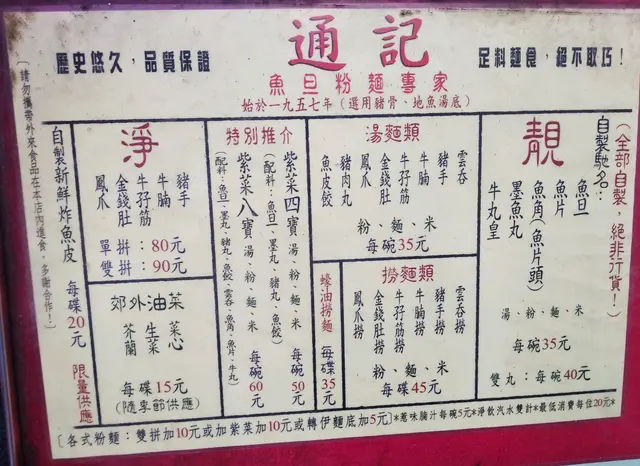 通記
歷史悠久，品質保證
足料麵食，絕不取巧！
魚旦粉麵專家
始於一九五七年（選用豬骨、地魚湯底）
靚
（全部自製，絕非行貨！）
自製馳名：
魚旦
魚片
魚角（魚片頭）
墨魚丸
牛丸皇
湯、粉、麵、米
每碗35元
雙丸：每碗40元
湯麵類
雲吞
豬手
牛腩
牛孖筋
金錢肚
鳳爪
豬肉丸
魚皮餃
粉、麵、米
每碗35元
撈麵類
雲吞撈
豬手撈
牛腩撈
牛孖筋撈
金錢肚撈
鳳爪撈
粉、麵、米
每碟45元
蠔油撈麵
每碟35元
特別推介
紫菜四寶 湯、粉、麵、米 每碗50元
（配料：魚旦、墨丸、豬丸、魚餃）
紫菜八寶 湯、粉、麵、米 每碗60元
（配料：魚旦、墨丸、豬丸、魚餃、雲吞、魚角、魚片、牛丸）
淨
豬手
牛腩
牛孖筋
金錢肚
鳳爪
單拼：80元
雙拼：90元
郊外油菜
菜心
生菜
芥蘭
每碟15元
（隨季節供應）
自製新鮮炸魚皮 每碟20元 限量供應
（請勿攜帶外來食品在本店內進食，多謝合作！）
［各式粉麵：雙拼加10元或加紫菜加10元或轉伊麵底加5元］*惹味腩汁每碗5元*淨飲汽水雙計*最低消費每位20元*